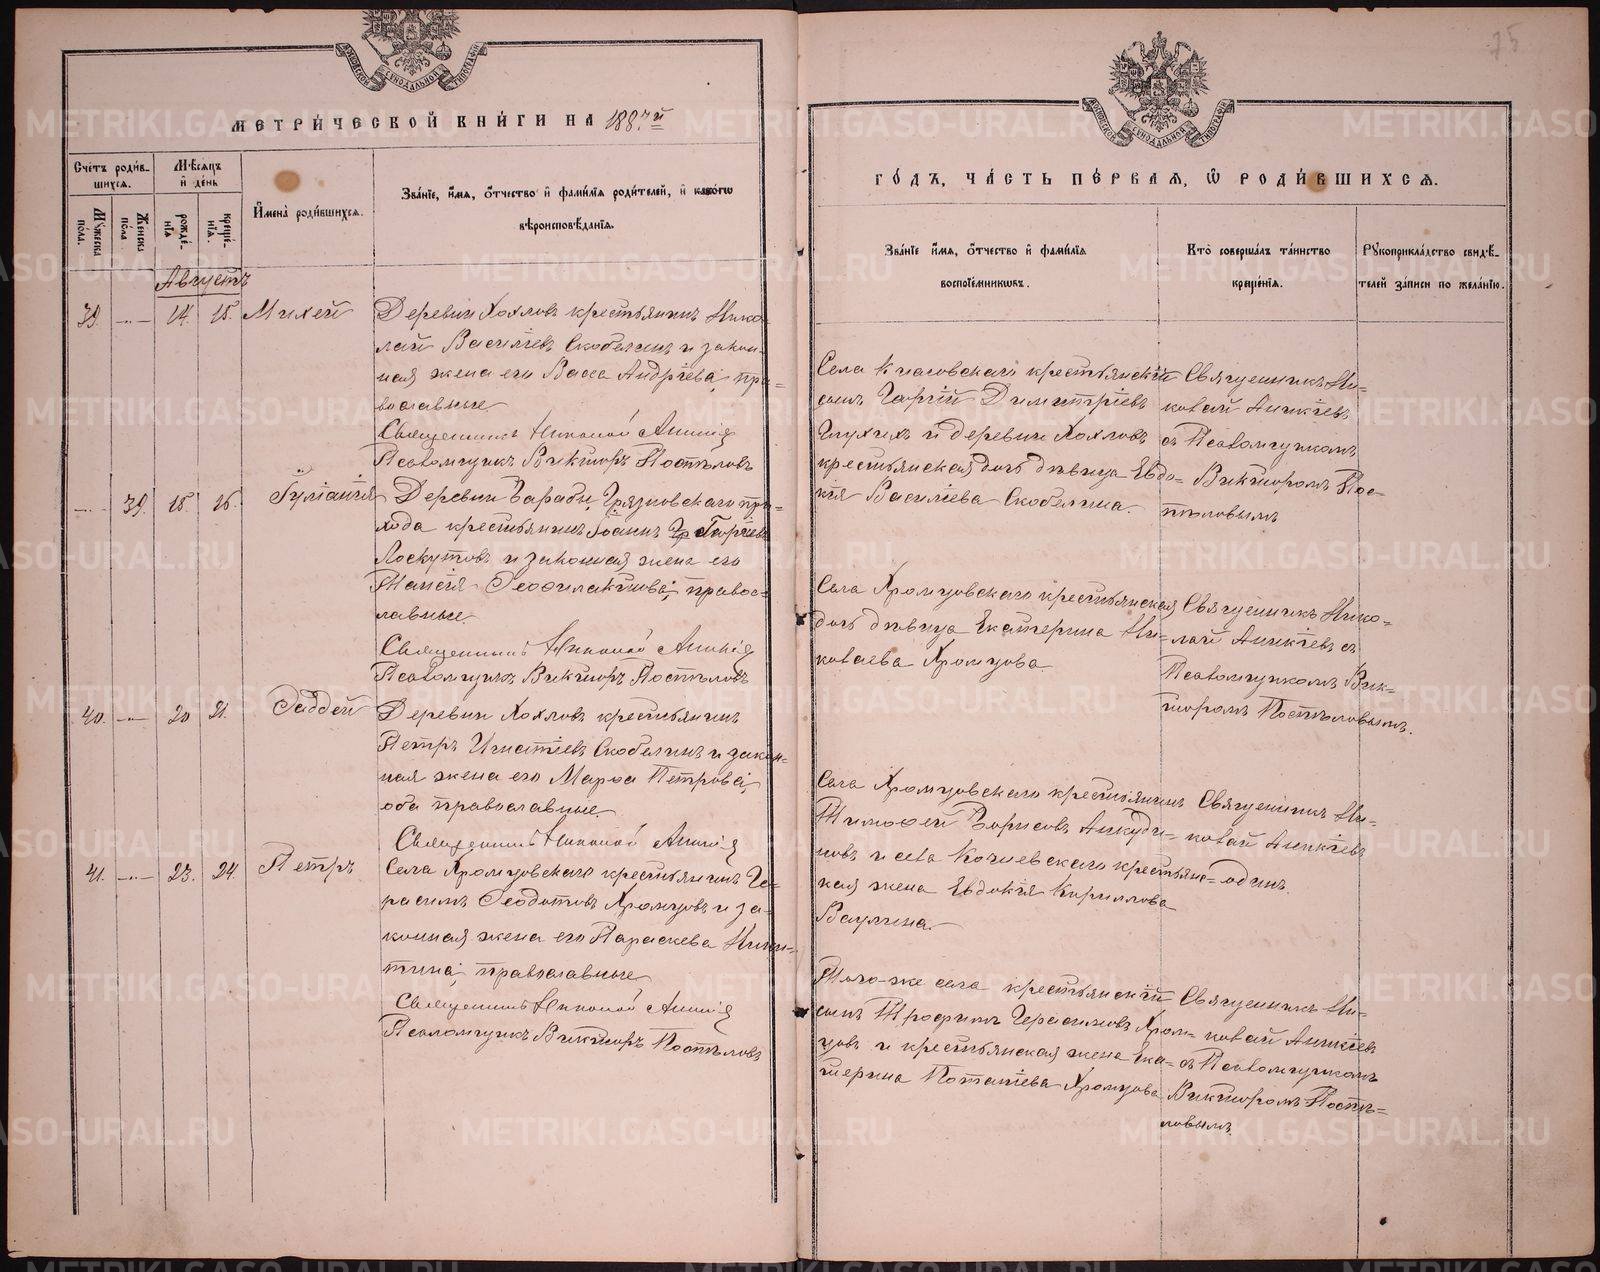 МЕТРИЧЕСКОЙ КНИГИ НА 1887й
Счетъ родив-
шихся.
Мѣсяцъ
и день
Мужеска пола.
Женска пола
рожде-
нїя
креще-
нїя.
Имена родившихся.
Званїе, имя, отчество и фамилїя родителей, и какогѡ
вѣроисповѣданїя.
Августъ
39. 14. 15. Михей
Деревни Хохловъ крестьянинъ Нико-
лай Василіевъ Скобелинъ и закон-
ная жена его Васса Андріева, пра-
вославные
Священникъ Николай Аникіев
Псаломщикъ Викторъ Постѣловъ
39. 15. 16. Іуліанія
Деревни Грязновскаго при-
хода крестьянинъ Іоаннъ Георгіевъ
Лоскутовъ и законная жена его
Таисія Феофилактова, правос-
лавные.
Священникъ Николай Аникіев
Псаломщикъ Викторъ Постѣловъ
40. 20 21. Фаддей
Деревни Хохловъ крестьянинъ
Петръ Игнатіевъ Скобелинъ и закон-
ная жена его Марфа Петрова,
оба православные.
Священникъ Николай Аникіев
41. 23. 24. Петръ
Села Хромцовскаго крестьянинъ Ге-
расимъ Феодотовъ Хромцовъ и за-
конная жена его Параскева Ники-
тина, православные
Священникъ Николай Аникіев
Псаломщикъ Викторъ Постѣловъ
75
ГОДЪ, ЧАСТЬ ПЕРВАЯ, Ѡ РОДИВШИХСЯ.
Званїе имя, отчество и фамилїя
воспрїемникѡвъ.
Кто совершалъ таинство
крещенїя.
Рукоприкладство свидѣ-
телей записи по желанїю.
Села крестьянскій
сынъ Димитріевъ
Глухихъ и деревни Хохловъ
крестьянская дочь дѣвица Евдо-
кія Василіева Скобелина.
Священникъ Ни-
колай Аникіевъ
съ Псаломщикомъ
Викторомъ Пос-
тѣловымъ
Села Хромцовскаго крестьянская
дочь дѣвица Екатерина Ни-
колаева Хромцова
Священникъ Нико-
лай Аникіевъ съ
Псаломщикомъ Вик-
торомъ Постѣловымъ.
Села Хромцовскаго крестьянинъ
Тимофей Борисовъ Анкуди-
новъ и села крестьянс-
кая жена Евдокія Кириллова
Ваулина.
Священникъ Ни-
колай Аникіевъ
одинъ.
Того-же села крестьянскій
сынъ Трофимъ Герасимовъ Хром-
цовъ и крестьянская жена Ека-
терина Потапіева Хромцова
Священникъ Ни-
колай Аникіевъ
съ Псаломщикомъ
Викторомъ Постѣ-
ловымъ.
METRIKI.GASO-URAL.RU